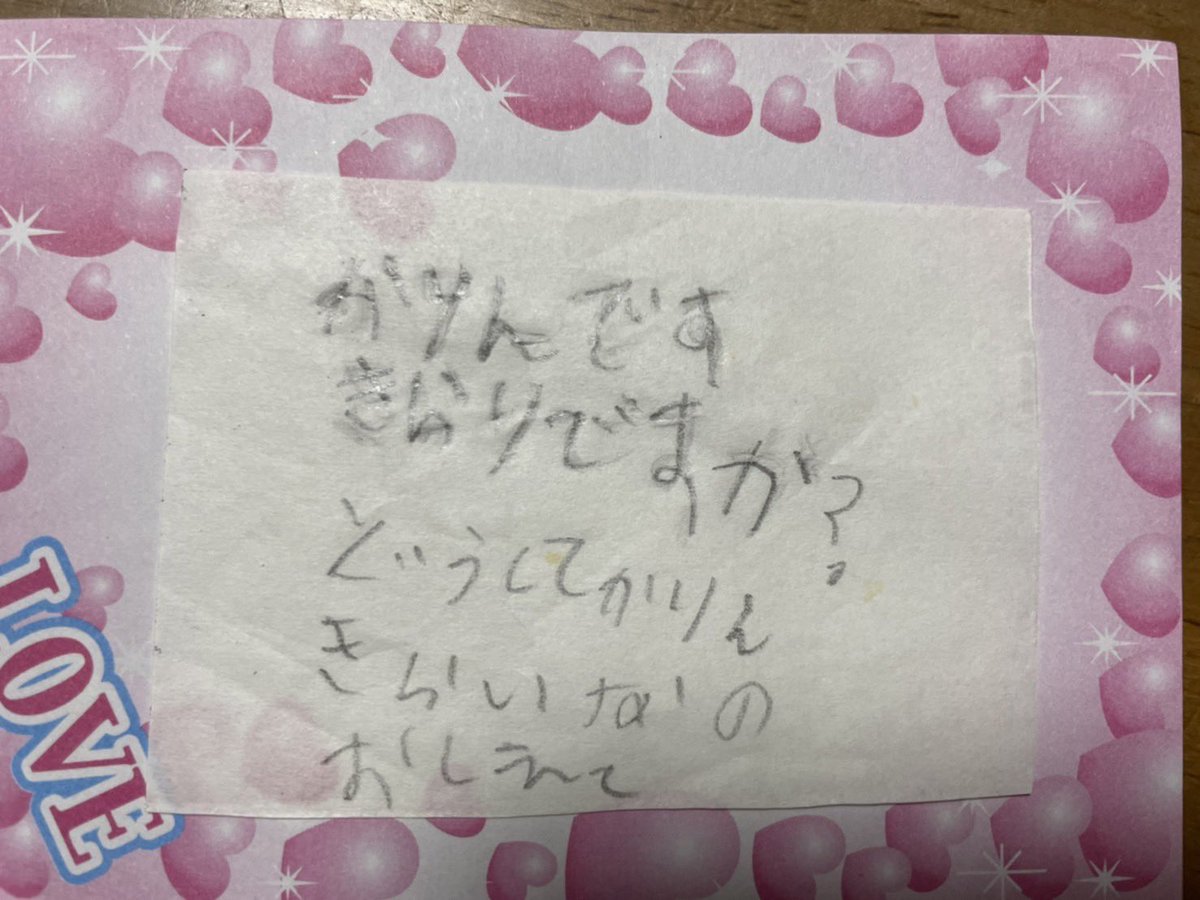 かりんです
きらりですか?
どうしてかりん
きらいなの
おしえて
LOVE